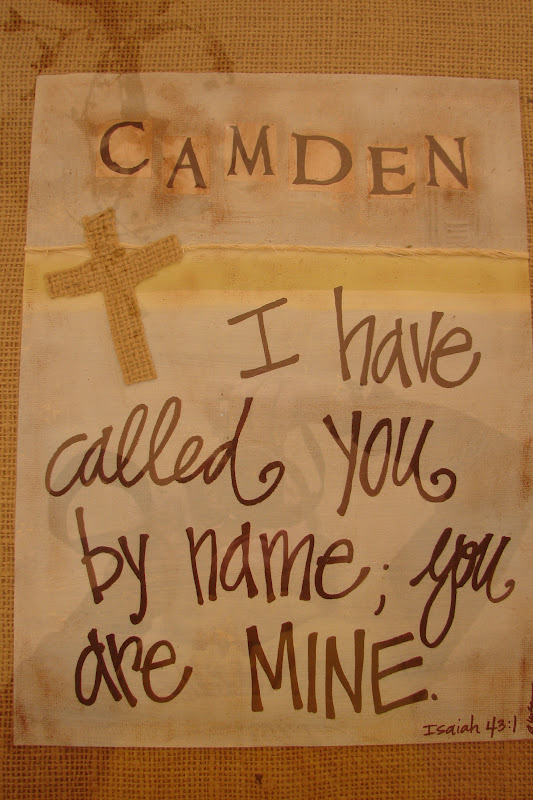 CAMDEN
I have
called you
by name; you
are MINE.
Isaiah 43:1